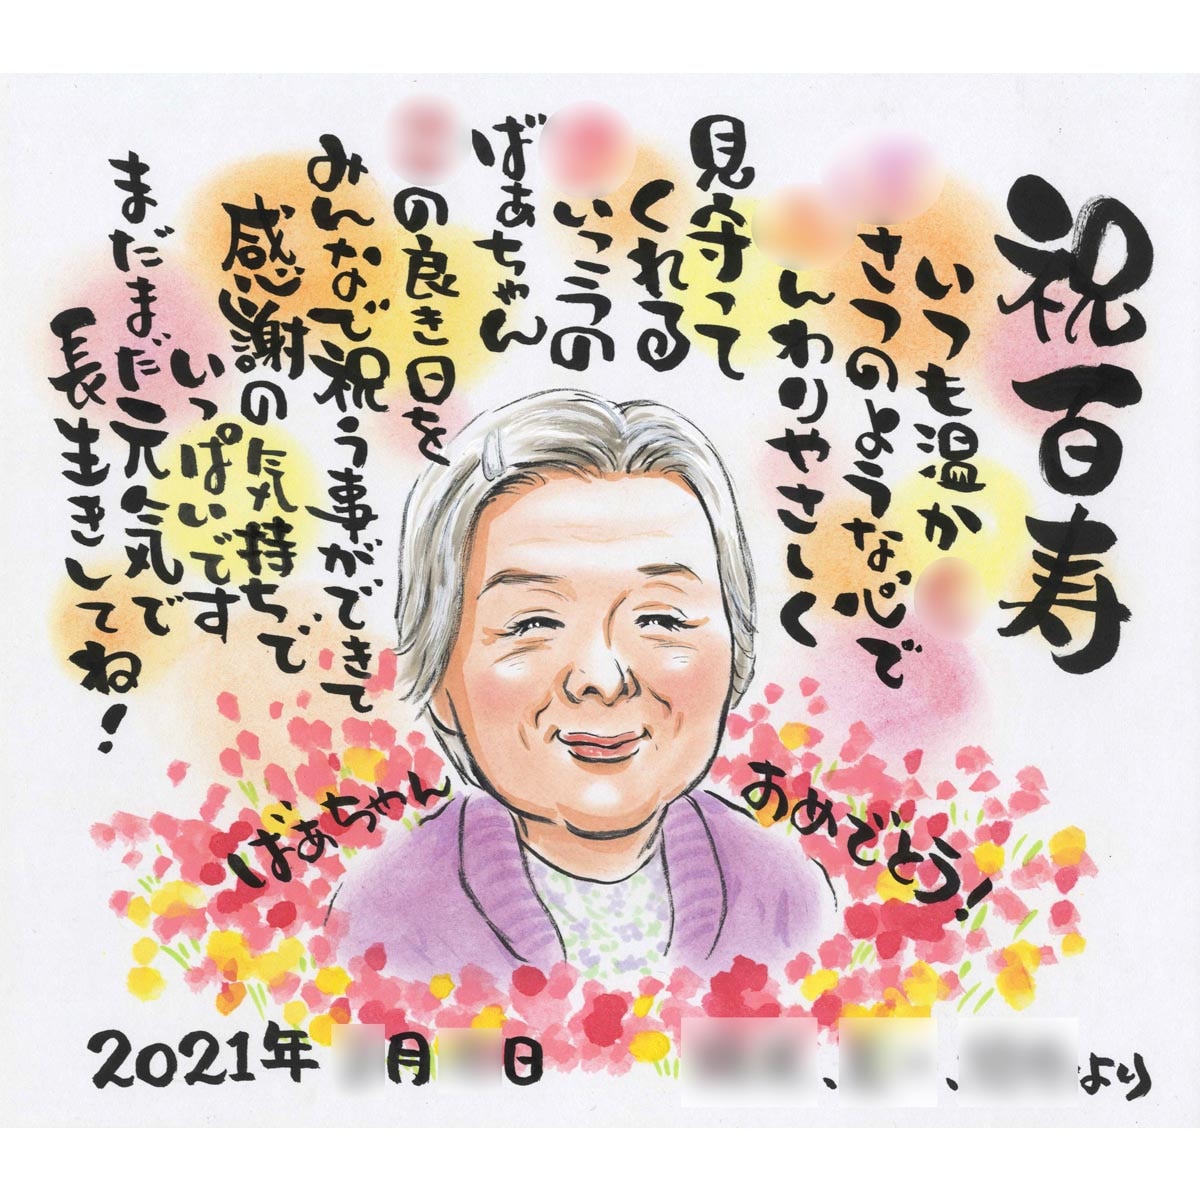 祝百寿
いつも温か
さつのような心で
んわりやさしく
見守って
くれる
いっうの
ばぁちゃん
の良き日を
みんなで祝う事ができて
感謝の気持ちで
いっぱいです
まだまだ元気で
長生きしてね!
ばぁちゃん
おめでとう!
2021年 月 日
、 、 より